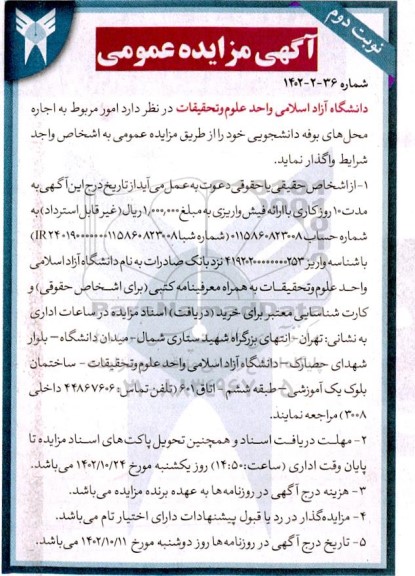 نوبت دوم
آگهی مزایده عمومی
شماره ۳۶-۲-۱۴۰۲
دانشگاه آزاد اسلامی واحد علوم و تحقیقات در نظر دارد امور مربوط به اجاره
محل‌های بوفه دانشجویی خود را از طریق مزایده عمومی به اشخاص واجد
شرایط واگذار نماید.
۱- از اشخاص حقیقی یا حقوقی دعوت به عمل می‌آید از تاریخ درج این آگهی به
مدت ۱۰ روز کاری با ارائه فیش واریزی به مبلغ ۱,۰۰۰,۰۰۰ ریال (غیر قابل استرداد) به
شماره حساب ۰۱۱۵۸۶۰۸۲۳۰۰۸ (شماره شبا
با شناسه واریز نزد بانک صادرات به نام دانشگاه آزاد اسلامی
واحد علوم و تحقیقات به همراه معرفینامه کتبی (برای اشخاص حقوقی) و
کارت شناسایی معتبر برای خرید (دریافت) اسناد مزایده در ساعات اداری
به نشانی: تهران- انتهای بزرگراه شهید ستاری شمال- میدان دانشگاه- بلوار
شهدای حصارک- دانشگاه آزاد اسلامی واحد علوم و تحقیقات- ساختمان
بلوک یک آموزشی- طبقه ششم- اتاق ۶۰۱ (تلفن تماس: ۴۴۸۶۷۶۰۶ داخلی
۳۰۰۸) مراجعه نمایند.
۲- مهلت دریافت اسناد و همچنین تحویل پاکت‌های اسناد مزایده تا
پایان وقت اداری (ساعت: ۱۴:۵۰) روز یکشنبه مورخ ۱۴۰۲/۱۰/۲۴ می‌باشد.
۳- هزینه درج آگهی در روزنامه‌ها به عهده برنده مزایده می‌باشد.
۴- مزایده‌گذار در رد یا قبول پیشنهادات دارای اختیار تام می‌باشد.
۵- تاریخ درج آگهی در روزنامه‌ها روز دوشنبه مورخ ۱۴۰۲/۱۰/۱۱ می‌باشد.